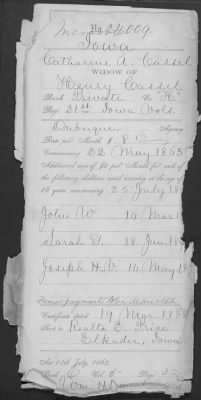 No 24,009.
Iowa
Catharine A. Cassel
WIDOW OF
Henry Cassel
Rank Private Co "H"
Regt 21st Iowa Vols.
Dubuque Agency
Rate per Month $ 8
Commencing 22 May 1863
Additional sum of $2 per month for each of
the following children, until arriving at the age of
16 years, commencing 25 July 18
John W. 14 Mar 1
Sarah E. 18 Jan. 18
Joseph H. 14 May 18
Certificate dated 19 Mar 1868
Sent to
E. Price
Elkader, Iowa
Act 14th July, 1862.
Book Vol. Page